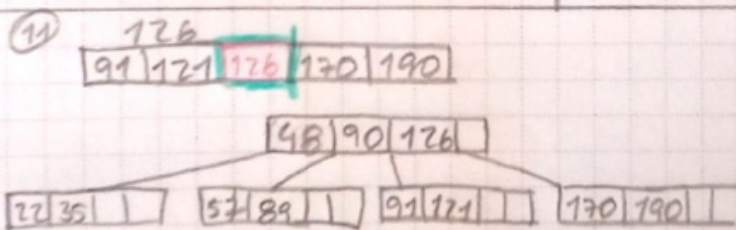 11 126
91 121 126 170 190
48 90 126
22 35 57 89 91 121 170 190